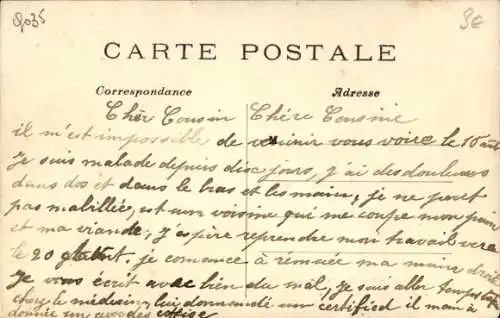 9035
3e
CARTE POSTALE
Correspondance Adresse
Chèr Cousin Chére Cousine
il m'est impossible de venir vous voire le 15 août
Je suis malade depuis disc jours, j'ai des douleures
dans dos et dans le bras et les mains, je ne peut
pas mabillée, est un voisine qui me coupe mon pain
et ma viande, j'espère reprendre mon travail vers
le 20 je comance à rémuée ma main droite
Je vous écrit avec bien du mal, je suis aller
chez le médecin, lui demandé un certified il m'an à
donnée un